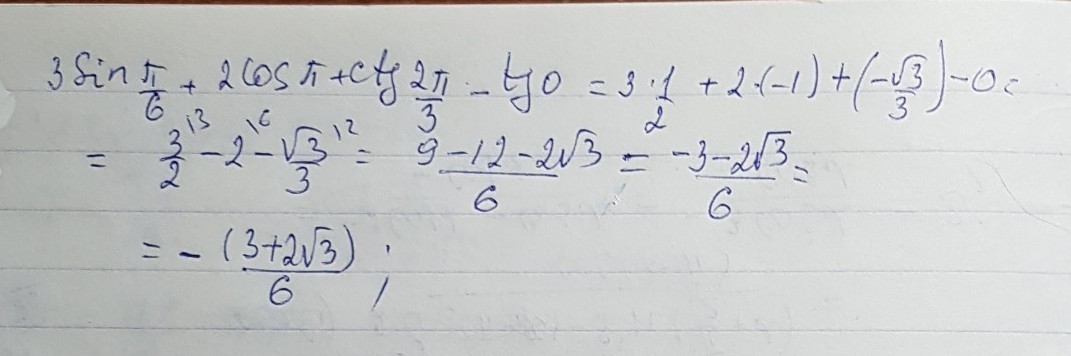 3 Sin π/6 + 2 cos π + ctg 2π/3 - tg 0 = 3 · 1/2 + 2 · (-1) + (-√3/3) - 0 =
= 3/2 \3 - 2 \6 - √3/3 \2 = (9 - 12 - 2√3)/6 = (-3 - 2√3)/6 =
= - (3 + 2√3)/6 ;